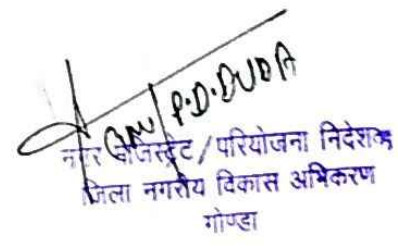 P.D. DUDA
नगर मजिस्ट्रेट/परियोजना निदेशक
जिला नगरीय विकास अभिकरण
गोण्डा